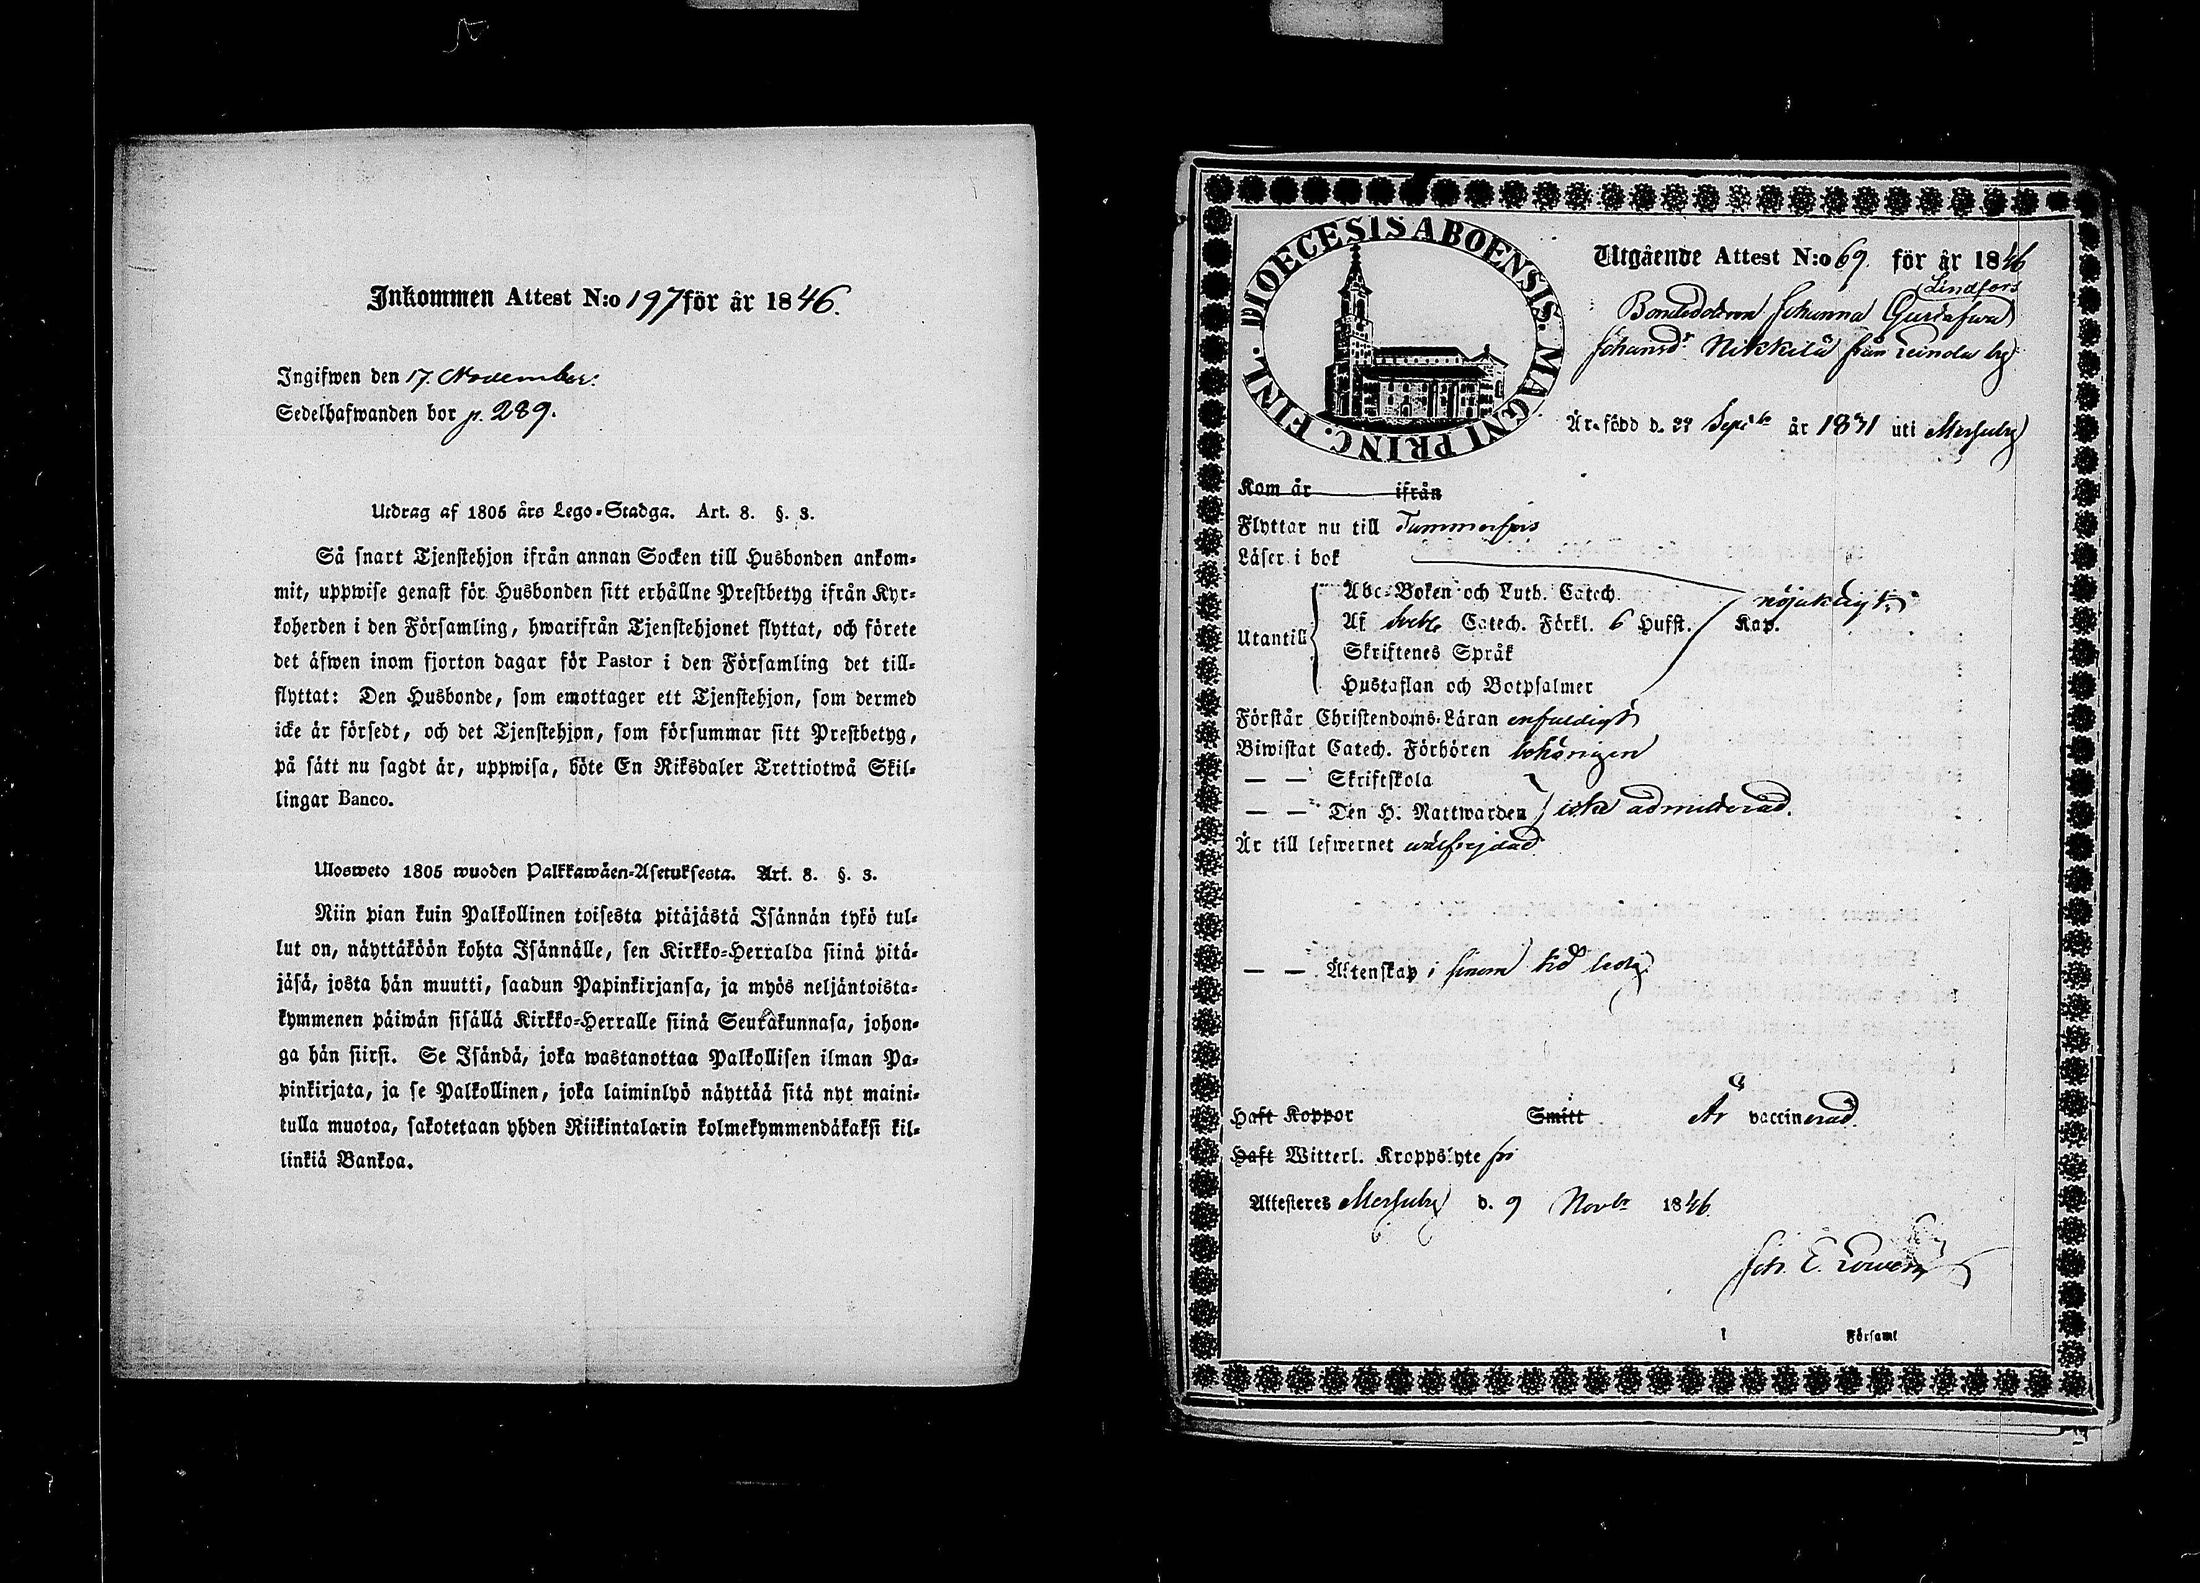 Inkommen Attest N:o 197 för år 1846.
Ingifwen den 17. November.
Sedelhafwanden bor p. 289.
Utdrag af 1805 års Lego-Stadga. Art. 8. §. 3.
Så snart Tjenstehjon ifrån annan Socken till Husbonden ankom-
mit, uppwise genast för Husbonden sitt erhållne Prestbetyg ifrån Kyr-
koherden i den Församling, hwarifrån Tjenstehjonet flyttat, och förete
det äfwen inom fjorton dagar för Pastor i den Församling det till-
flyttat: Den Husbonde, som emottager ett Tjenstehjon, som dermed
icke är försedt, och det Tjenstehjon, som försummar sitt Prestbetyg,
på sätt nu sagdt är, uppwisa, böte En Riksdaler Trettiotwå Skil-
lingar Banco.
Ulosweto 1805 wuoden Palkkawäen-Asetuksesta. Art. 8. §. 3.
Niin pian kuin Palkollinen toisesta pitäjästä Isännän tykö tul-
lut on, näyttäköön kohta Isännälle, sen Kirkko-Herralda siinä pitä-
jäsä, josta hän muutti, saadun Papinkirjansa, ja myös neljäntoista-
kymmenen päiwän sisällä Kirkko-Herralle siinä Seurakunnasa, johon-
ga hän siirsi. Se Isändä, joka wastanottaa Palkollisen ilman Pa-
pinkirjata, ja se Palkollinen, joka laiminlyö näyttää sitä nyt maini-
tulla muotoa, sakotetaan yhden Riikintalarin kolmekymmendäkaksi kil-
linkiä Bankoa.
DIOECESIS ABOENSIS. MAGNI PRINC. FINL.
Utgående Attest N:o 69 för år 1846
Lindfors
Bondedottren Johanna Gustafwa
Johansdr Nikkilä från Leinola by
Är född d. 29 Septbr år 1831 uti Messuby
Kom år ifrån
Flyttar nu till Tammerfors
Läser i bok
Abc-Boken och Luth. Catech. nöjaktigt.
Af Svebil. Catech. Förkl. 6 Hufst. Kap.
Utantill
Skriftenes Språk
Hustaflan och Botpsalmer
Förstår Christendoms-Läran enfaldigt
Biwistat Catech. Förhören behörigen
— — Skriftskola
— — Den H. Nattwarden icke admitterad.
Är till lefwernet wälfrejdad
— — Äktenskap i sinom tid ledig.
Haft Koppor Smitt Är vaccinerad.
Haft Witterl. Kroppslyte fri
Attesteres Messuby d. 9 Novbr 1846
Joh. E.
Församl